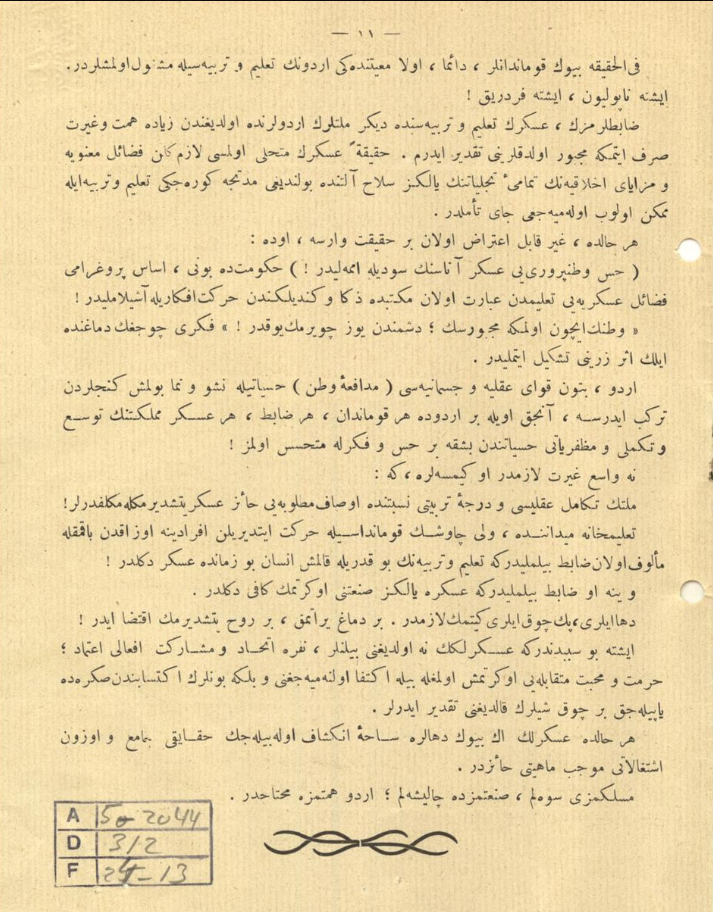 — ١١ —
فی‌الحقیقه بیوك قوماندانلر ، دائما ، اولا معیتنده‌كی اردونك تعلیم و تربیه‌سیله مشغول اولمشلردر.
ایشته ناپولیون ، ایشته فردریق !
ضابطلرمزك ، عسكرك تعلیم و تربیه‌سنده دیكر ملتلرك اردولرنده اولدیغندن زیاده همت وغیرت
صرف ایتمكه مجبور اولدقلرینی تقدیر ایدرم . حقیقةً عسكرك متحلی اولمسی لازم‌كلن فضائل معنویه
و مزایای اخلاقیه‌نك تمامیٔ تجلیاتنك یالكز سلاح آلتنده بولندیغی مدتجه كوره‌جكی تعلیم وتربیه‌ایله
ممكن اولوب اوله‌میه‌جغی جای تأملدر .
هر حالده ، غیر قابل اعتراض اولان بر حقیقت وارسه ، اوده :
( حس وطنپروری‌یی عسكر آناسنك سودیله اممه‌لیدر ! ) حكومت‌ده بونی ، اساس پروغرامی
فضائل عسكریه‌یی تعلیمدن عبارت اولان مكتبده ذكا و كندیلكندن حركت‌افكاریله‌آشیلاملیدر !
« وطنك‌ایچون اولمكه مجبورسك ؛ دشمندن یوز چویرمك‌یوقدر ! » فكری چوجغك‌دماغنده
ایلك اثر زرینی تشكیل ایتملیدر .
اردو ، بتون قوای عقلیه و جسمانیه‌سی ( مدافعهٔ وطن ) حسیاتیله نشو و نما بولمش كنجلردن
تركب ایدرسه ، آنجق اویله بر اردوده هر قوماندان ، هر ضابط ، هر عسكر مملكتنك توسع
و تكملی و مظفریاتی حسیاتندن بشقه بر حس و فكرله متحسس اولمز !
نه واسع غیرت لازمدر او كیمسه‌لره ، كه :
ملتك تكامل عقلیسی و درجهٔ تربیتی نسبتنده اوصاف‌مطلوبه‌یی حائز عسكر یتشدیرمكله‌مكلفدرلر!
تعلیمخانه میداننده ، ولی چاوشك قومانداسیله حركت ایتدیریلن افرادینه اوزاقدن باقمقله
مألوف‌اولان‌ضابط بیلملیدركه تعلیم وتربیه‌نك بو قدریله قالمش انسان بو زمانده عسكر دكلدر !
و ینه او ضابط بیلملیدركه عسكره یالكز صنعتنی اوكرتمك كافی دكلدر .
دهاایلری،پك‌چوق‌ایلری كیتمك‌لازمدر . بر دماغ یراتمق ، بر روح یتشدیرمك اقتضا ایدر !
ایشته بو سببدندركه عسكرلكك نه اولدیغنی بیلنلر ، نفره اتحاد و مشاركت افعالی اعتماد ؛
حرمت و محبت متقابله‌یی اوكرتمش اولمغله بیله اكتفا اولنه‌میه‌جغنی و بلكه بونلرك اكتسابندن‌صكره‌ده
یاپیله‌جق بر چوق شیلرك قالدیغنی تقدیر ایدرلر .
هر حالده عسكرلك اك بیوك دهالره ساحهٔ انكشاف اوله‌بیله‌جك حقایقی جامع و اوزون
اشتغالاتی موجب ماهیتی حائزدر .
مسلكمزی سوه‌لم ، صنعتمزده چالیشه‌لم ؛ اردو همتمزه محتاجدر .
A 50-2044
D 312
F 24-13